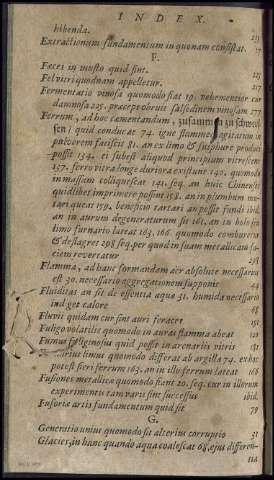 INDEX.
hibenda. 233
Extractionum fundamentum in quonam consistat. 17
F.
Fæces in musto quid sint. 225
Fel vitri quodnam appelletur. 217
Fermentatio vinosa quomodo fiat 19. vehementior cur
damnosa 225. præcepe obruit salsedinem vinosam 227
Ferrum, ad hoc cæmentandum,
sen) quid conducat 74. igne flammeo agitatum in
pulcorem fatiscit 81. an ex limo & sulphure produci
possit 134. ei subest aliquod principium vitrescens
137. ferro vitra longe duriora existunt 140. quomodo
in massam colliquescat 141. seq. an huic Chinenses
quidlibet imprimere possint 158. an in plumbum mu-
tari queat 159. beneficio tartari an possit fundi ibid.
an in aurum degeneraturum sit 161. an in
limo furnario lateat 163. 166. quomodo comburatur
& deflagret 298 seq. per quod in suam metallicam fa-
ciem revertatur 238
Flamma, ad hanc formandam aër absolute necessarius
est 30. necessario aggregationem supponit 44
Fluiditas an sit de essentia aquæ 31. humida necessario
indiget calore 68
Fluvii quidam cur sint auri feraces 151
Fuligo volatilis quomodo in auras flamma abeat 120
Fumus fuliginosus quid possit in arenariis vitris 131
limus quomodo differat ab argilla 74. ex hoc
potest fieri ferrum 163. an in illo ferrum lateat 166
Fusiones metallicæ quomodo fiant 20. seq. cur in illorum
experimentis tam rari sint successus ibid.
Fusoriæ artis fundamentum quid sit 79
G.
Generatio unius quomodo sit alterius corruptio 31
Glacies; in hanc quando aqua coalescat 68. ejus differen-
tia